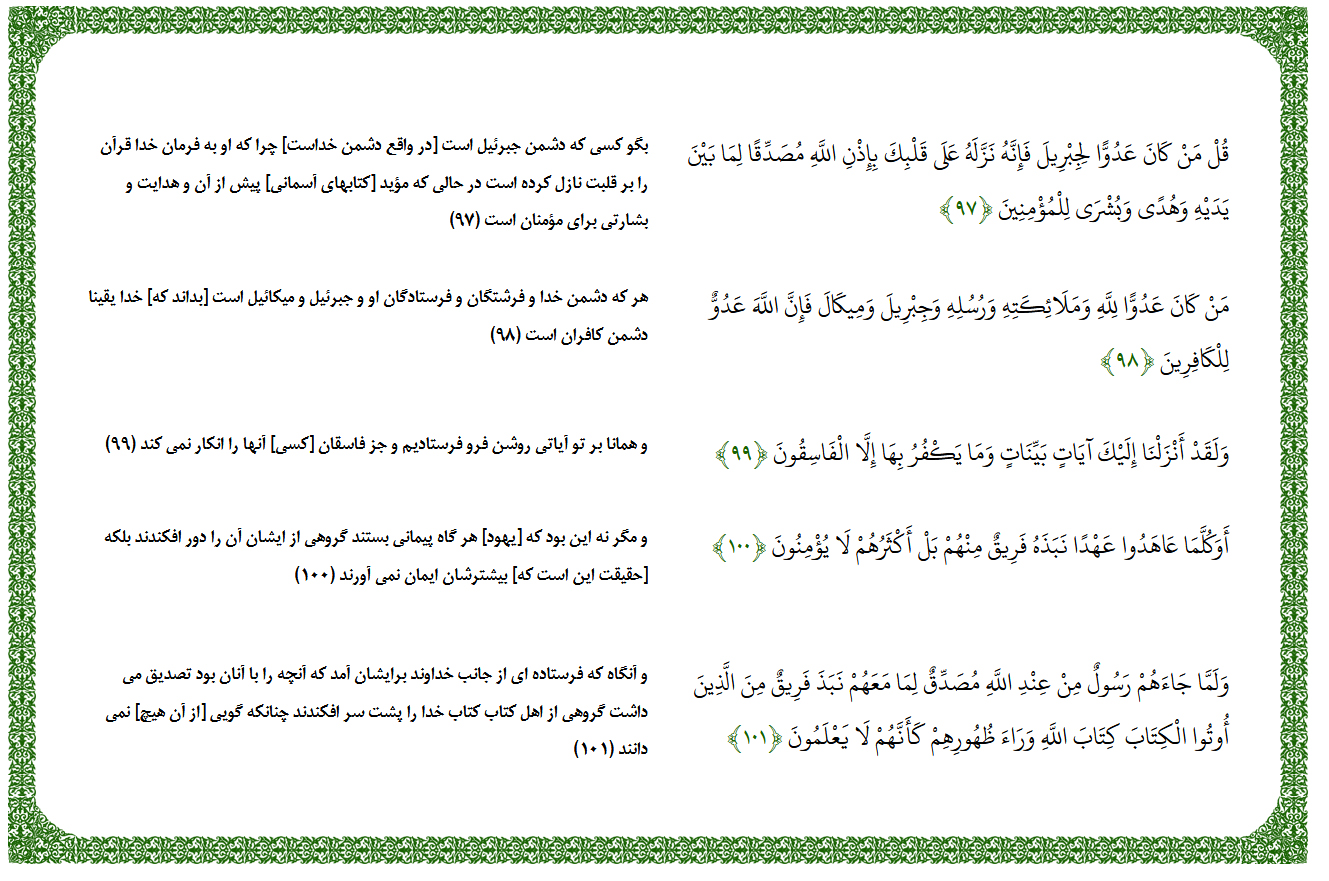 قُلْ مَنْ كَانَ عَدُوًّا لِجِبْرِيلَ فَإِنَّهُ نَزَّلَهُ عَلَى قَلْبِكَ بِإِذْنِ اللَّهِ مُصَدِّقًا لِمَا بَيْنَ
يَدَيْهِ وَهُدًى وَبُشْرَى لِلْمُؤْمِنِينَ ﴿۹۷﴾
بگو کسی که دشمن جبرئیل است [در واقع دشمن خداست] چرا که او به فرمان خدا قرآن
را بر قلبت نازل کرده است در حالی که مؤید [کتابهای آسمانی] پیش از آن و هدایت و
بشارتی برای مؤمنان است (۹۷)
مَنْ كَانَ عَدُوًّا لِلَّهِ وَمَلَائِكَتِهِ وَرُسُلِهِ وَجِبْرِيلَ وَمِيكَالَ فَإِنَّ اللَّهَ عَدُوٌّ
لِلْكَافِرِينَ ﴿۹۸﴾
هر که دشمن خدا و فرشتگان و فرستادگان او و جبرئیل و میکائیل است [بداند که] خدا یقینا
دشمن کافران است (۹۸)
وَلَقَدْ أَنْزَلْنَا إِلَيْكَ آيَاتٍ بَيِّنَاتٍ وَمَا يَكْفُرُ بِهَا إِلَّا الْفَاسِقُونَ ﴿۹۹﴾
و همانا بر تو آیاتی روشن فرو فرستادیم و جز فاسقان [کسی] آنها را انکار نمی کند (۹۹)
أَوَكُلَّمَا عَاهَدُوا عَهْدًا نَبَذَهُ فَرِيقٌ مِنْهُمْ بَلْ أَكْثَرُهُمْ لَا يُؤْمِنُونَ ﴿۱۰۰﴾
و مگر نه این بود که [یهود] هر گاه پیمانی بستند گروهی از ایشان آن را دور افکندند بلکه
[حقیقت این است که] بیشترشان ایمان نمی آورند (۱۰۰)
وَلَمَّا جَاءَهُمْ رَسُولٌ مِنْ عِنْدِ اللَّهِ مُصَدِّقٌ لِمَا مَعَهُمْ نَبَذَ فَرِيقٌ مِنَ الَّذِينَ
أُوتُوا الْكِتَابَ كِتَابَ اللَّهِ وَرَاءَ ظُهُورِهِمْ كَأَنَّهُمْ لَا يَعْلَمُونَ ﴿۱۰۱﴾
و آنگاه که فرستاده ای از جانب خداوند برایشان آمد که آنچه را با آنان بود تصدیق می
داشت گروهی از اهل کتاب کتاب خدا را پشت سر افکندند چنانکه گویی [از آن هیچ] نمی
دانند (۱۰۱)